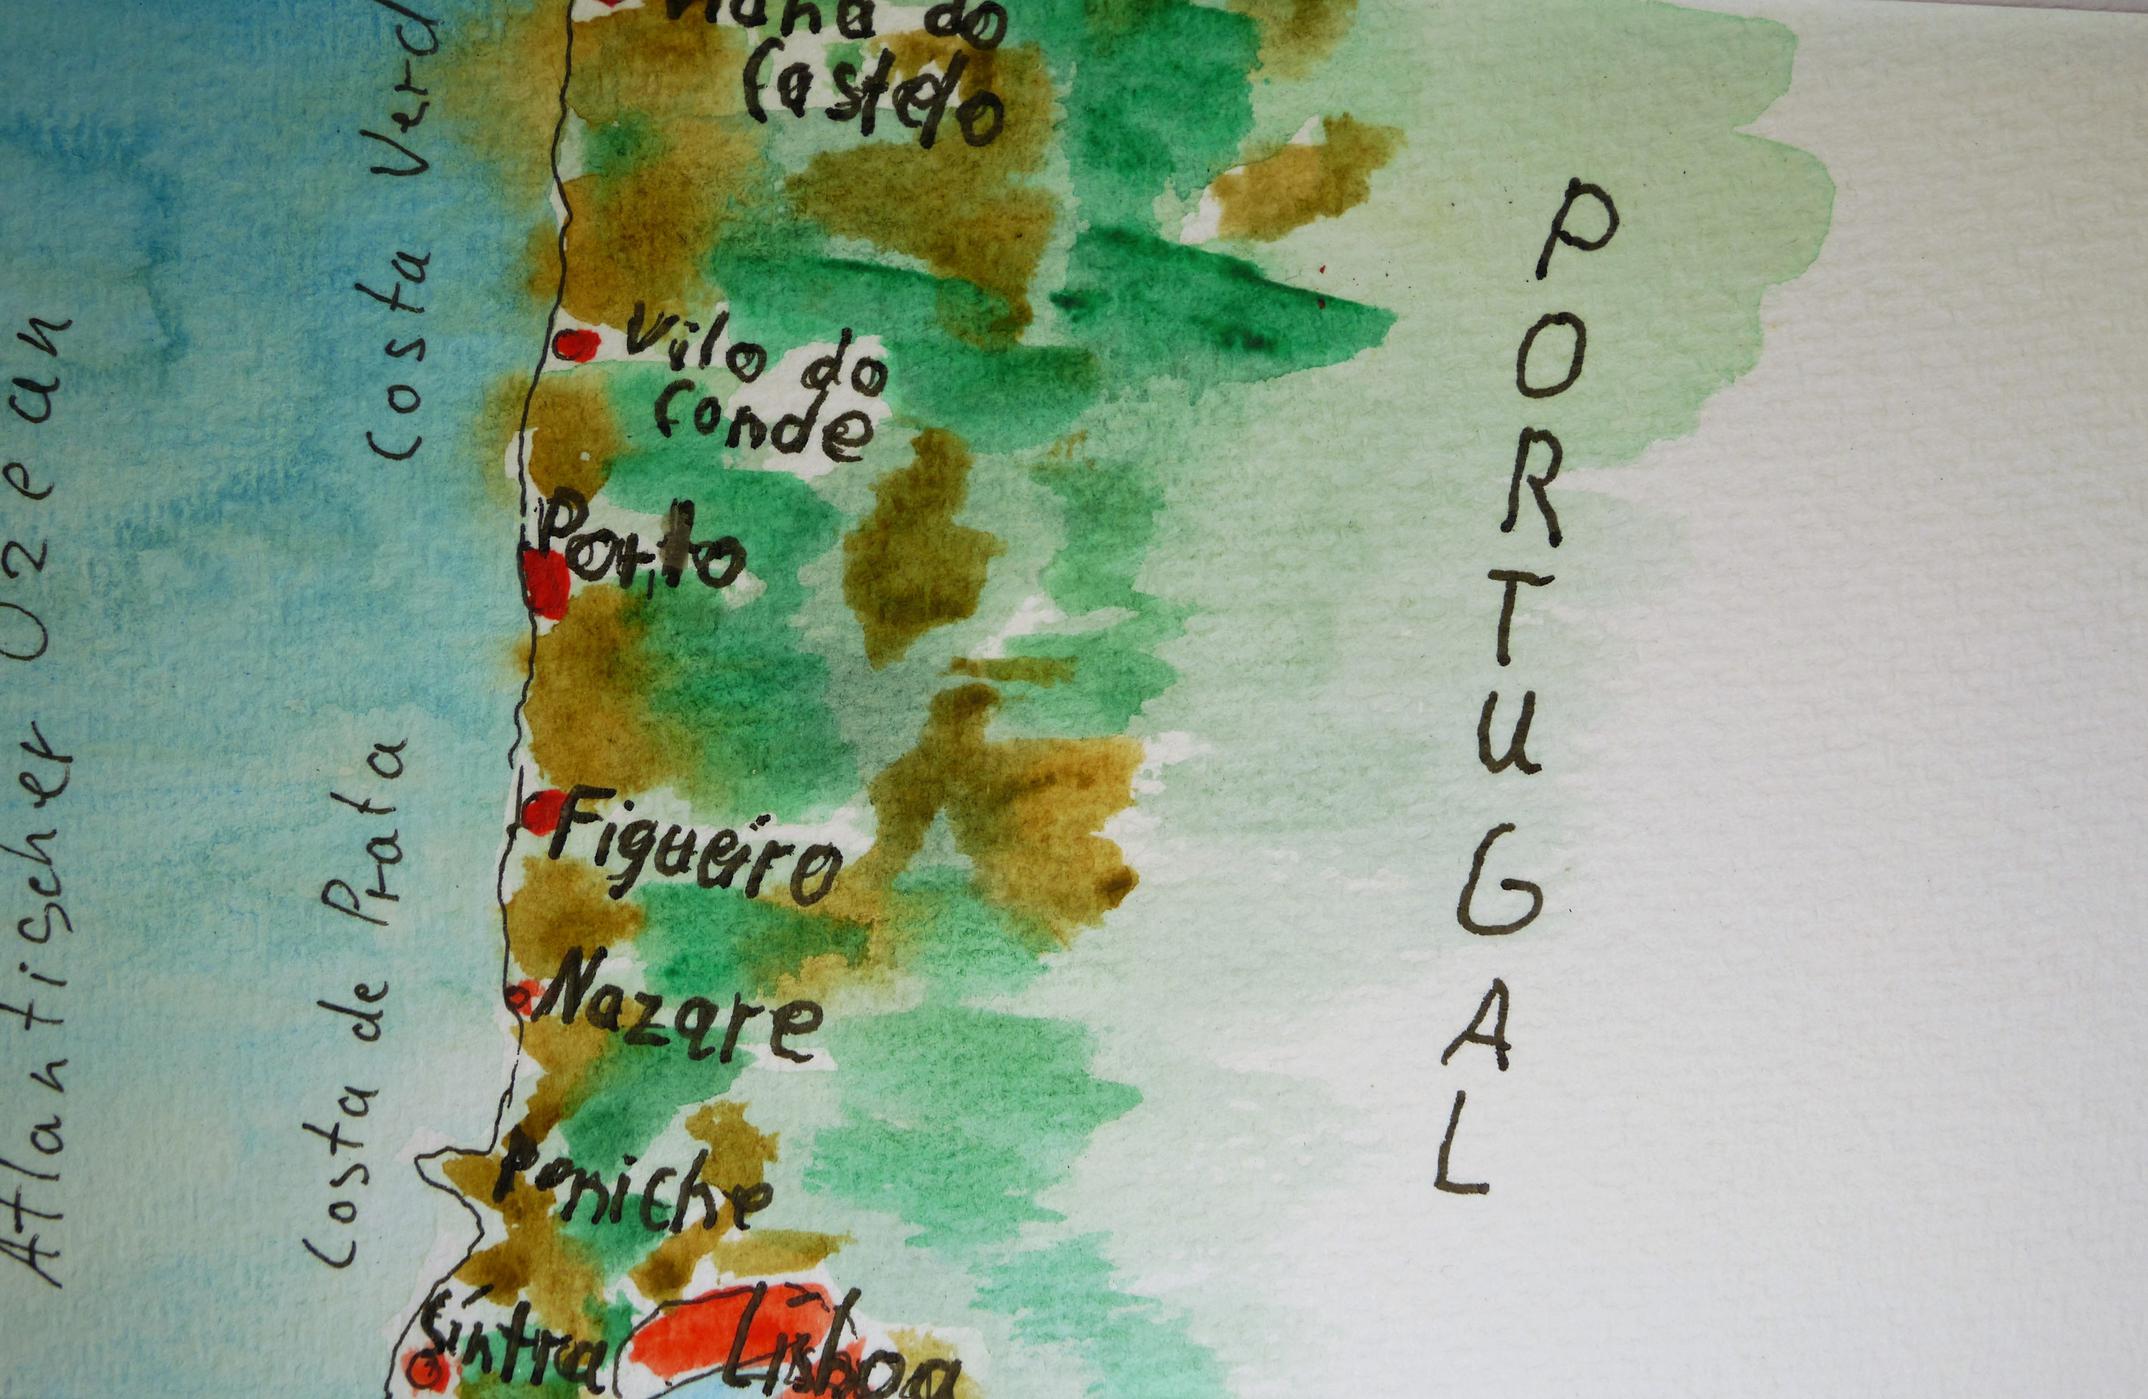 Atlantischer Ozean
Costa Verd
Costa de Prata
Viana do
Castelo
Vilo do
Conde
Porto
Figueiro
Nazare
Peniche
Sintra
Lisboa
PORTUGAL